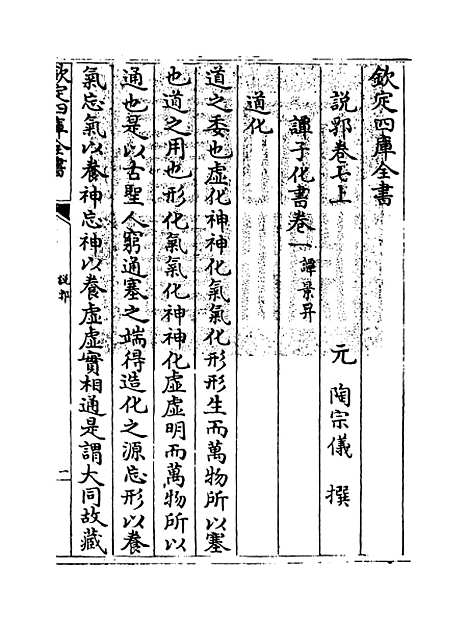 欽定四庫全書
說郛卷七上
元 陶宗儀 撰
譚子化書卷一譚景昇
道化
道之委也虛化神神化氣氣化形形生而萬物所以塞
也道之用也形化氣氣化神神化虛虛明而萬物所以
通也是以古聖人窮通塞之端得造化之源忘形以養
氣忘氣以養神忘神以養虛虛實相通是謂大同故藏
欽定四庫全書
說郛
二